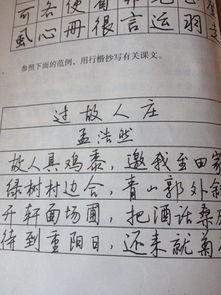 心 册 很 言 运 羽
参照下面的范例,用行楷抄写有关课文。
过故人庄
孟浩然
故人具鸡黍,邀我至田家
绿树村边合,青山郭外斜
开轩面场圃,把酒话桑
待到重阳日,还来就菊